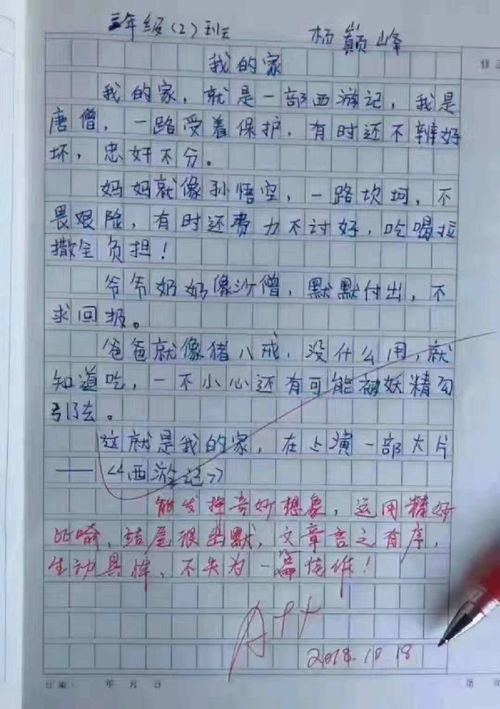 三年级(2)班 杨巅峰
我的家
我的家，就是一部西游记，我是
唐僧，一路受着保护，有时还不辨好
坏，忠奸不分。
妈妈就像孙悟空，一路坎坷，不
畏艰险，有时还费力不讨好，吃喝拉
撒全负担！
爷爷奶奶像沙僧，默默付出，不
求回报。
爸爸就像猪八戒，没什么用，就
知道吃，一不小心还有可能被妖精勾
引去。
这就是我的家，在上演一部大片
——《西游记》
能发挥奇妙想象，运用精妙
比喻，结尾很幽默，文章言之有序，
生动具体，不失为一篇佳作！
A++
2018.10.18
日期： 年 月 日